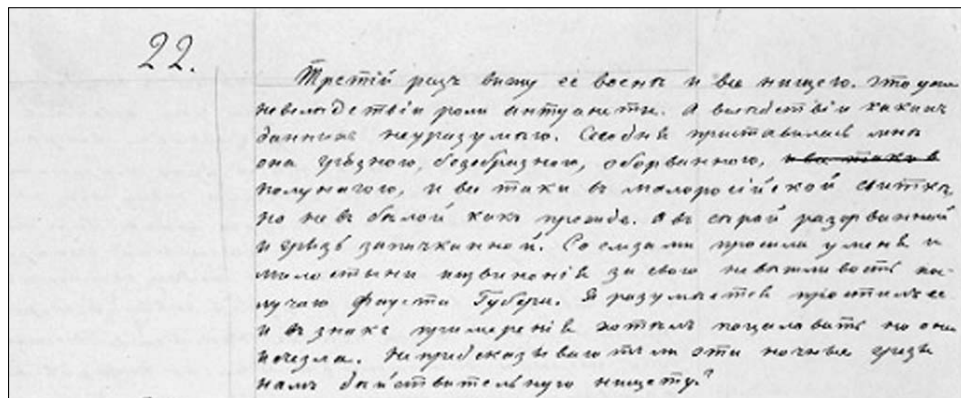 22.
Третій разъ вижу ее во снѣ и все нищею. Это уже
не вслѣдствіи роли Антуанеты. А вслѣдствіи какихъ
данныхъ неуразумѣю. Сегодня приставилась мнѣ
она грязною, безобразною, оборванною,
полунагою, и все таки в малоросійской свиткѣ,
но не в бѣлой какъ прежде. а въ сѣрой разорванной
и грязью запачканной. Со слезами просила у меня и
милостыни и извиненія за свою невѣжливость по
случаю Фауста Губера. Я разумѣется простилъ ее
и въ знакъ примиренія хотѣлъ поцаловать но она
исчезла. Не предсказываютъ ли эти ночные грезы
намъ действительную нищету?